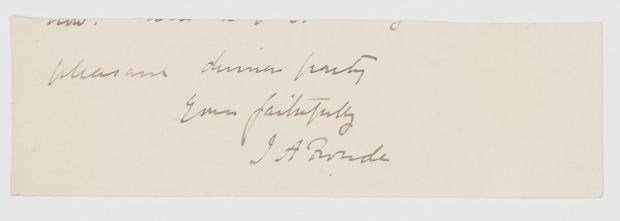 now.
pleasant dinner party
Yours faithfully
J A Froude